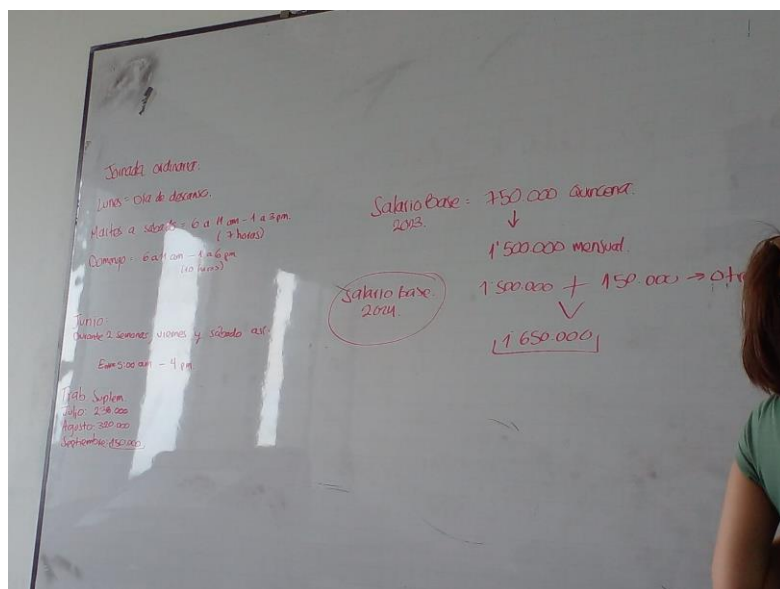 Jornada ordinaria.
Lunes = Día de descanso.
Martes a sábado = 6 a 11 am - 1 a 3 pm.
(7 horas)
Domingo = 6 a 11 am - 1 a 6 pm
(10 horas)
Junio:
Durante 2 semanas viernes y sábado así:
5:00 am - 4 pm
Trab Suplem
Julio: 230.000
Agosto: 320.000
Septiembre: 150.000
Salario base = 750.000 Quincena.
2023.
↓
1'500.000 mensual.
Salario base.
2024.
1'500.000 + 150.000 →
1'650.000